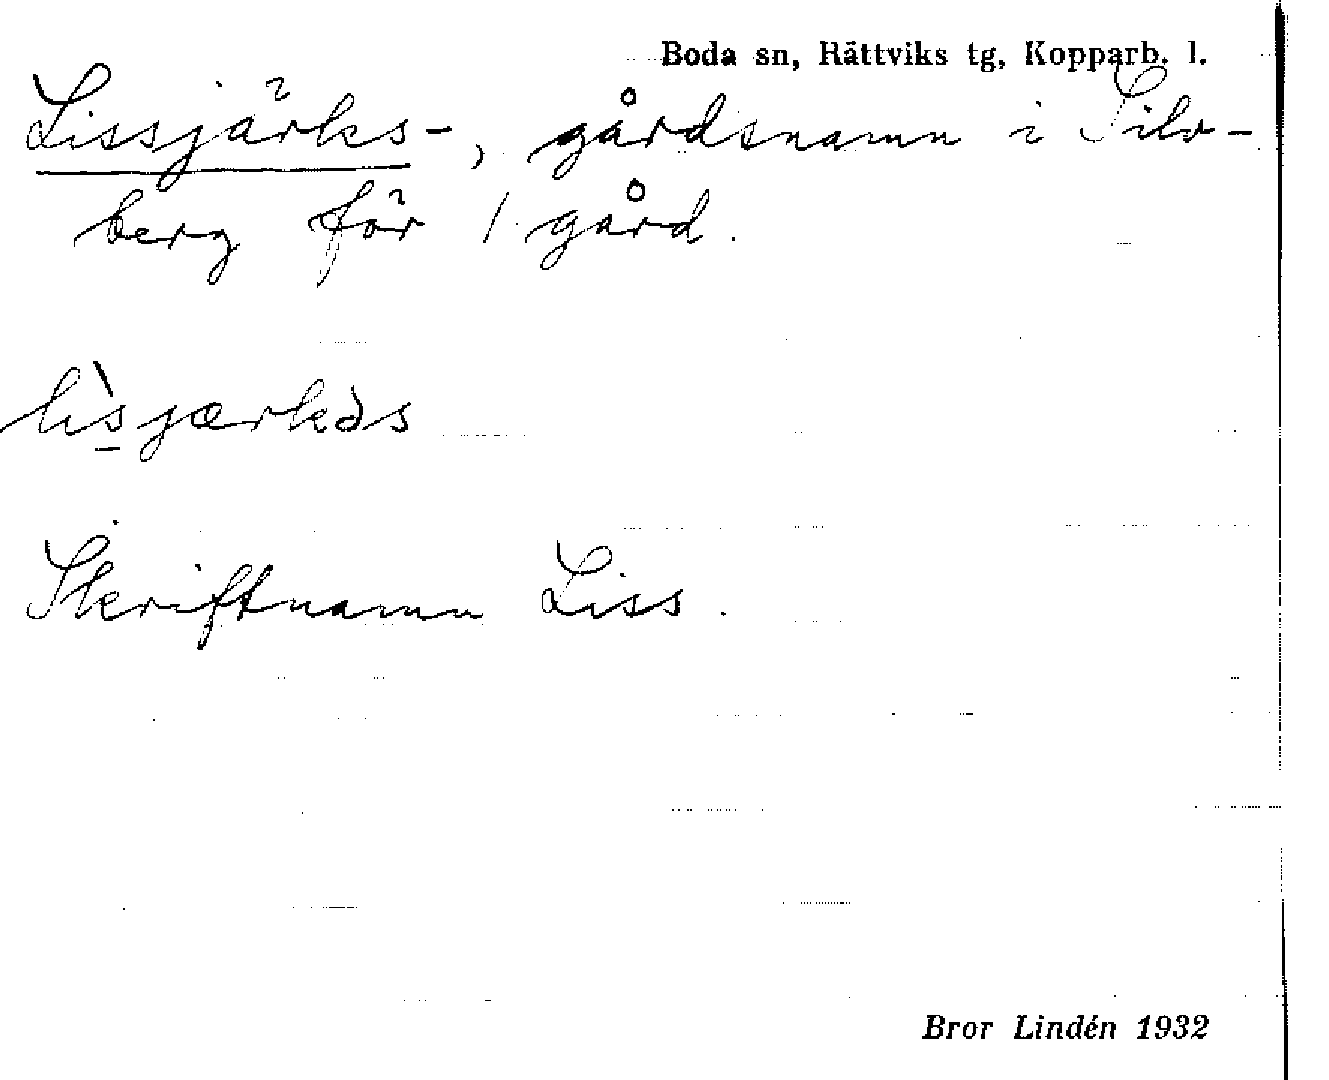 Boda sn, Rättviks tg, Kopparb. l.
Lissjärks-, gårdsnamn i Silv-
berg för 1 gård.
lìsjærkəs
Skriftnamn Liss.
Bror Lindén 1932